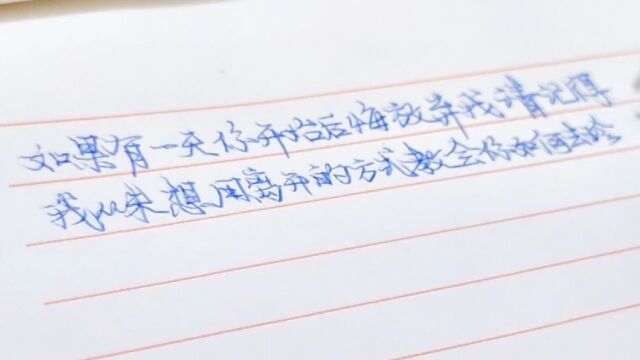 如果有一天你开始后悔放弃我请记得
我从未想用离开的方式教会你如何去珍